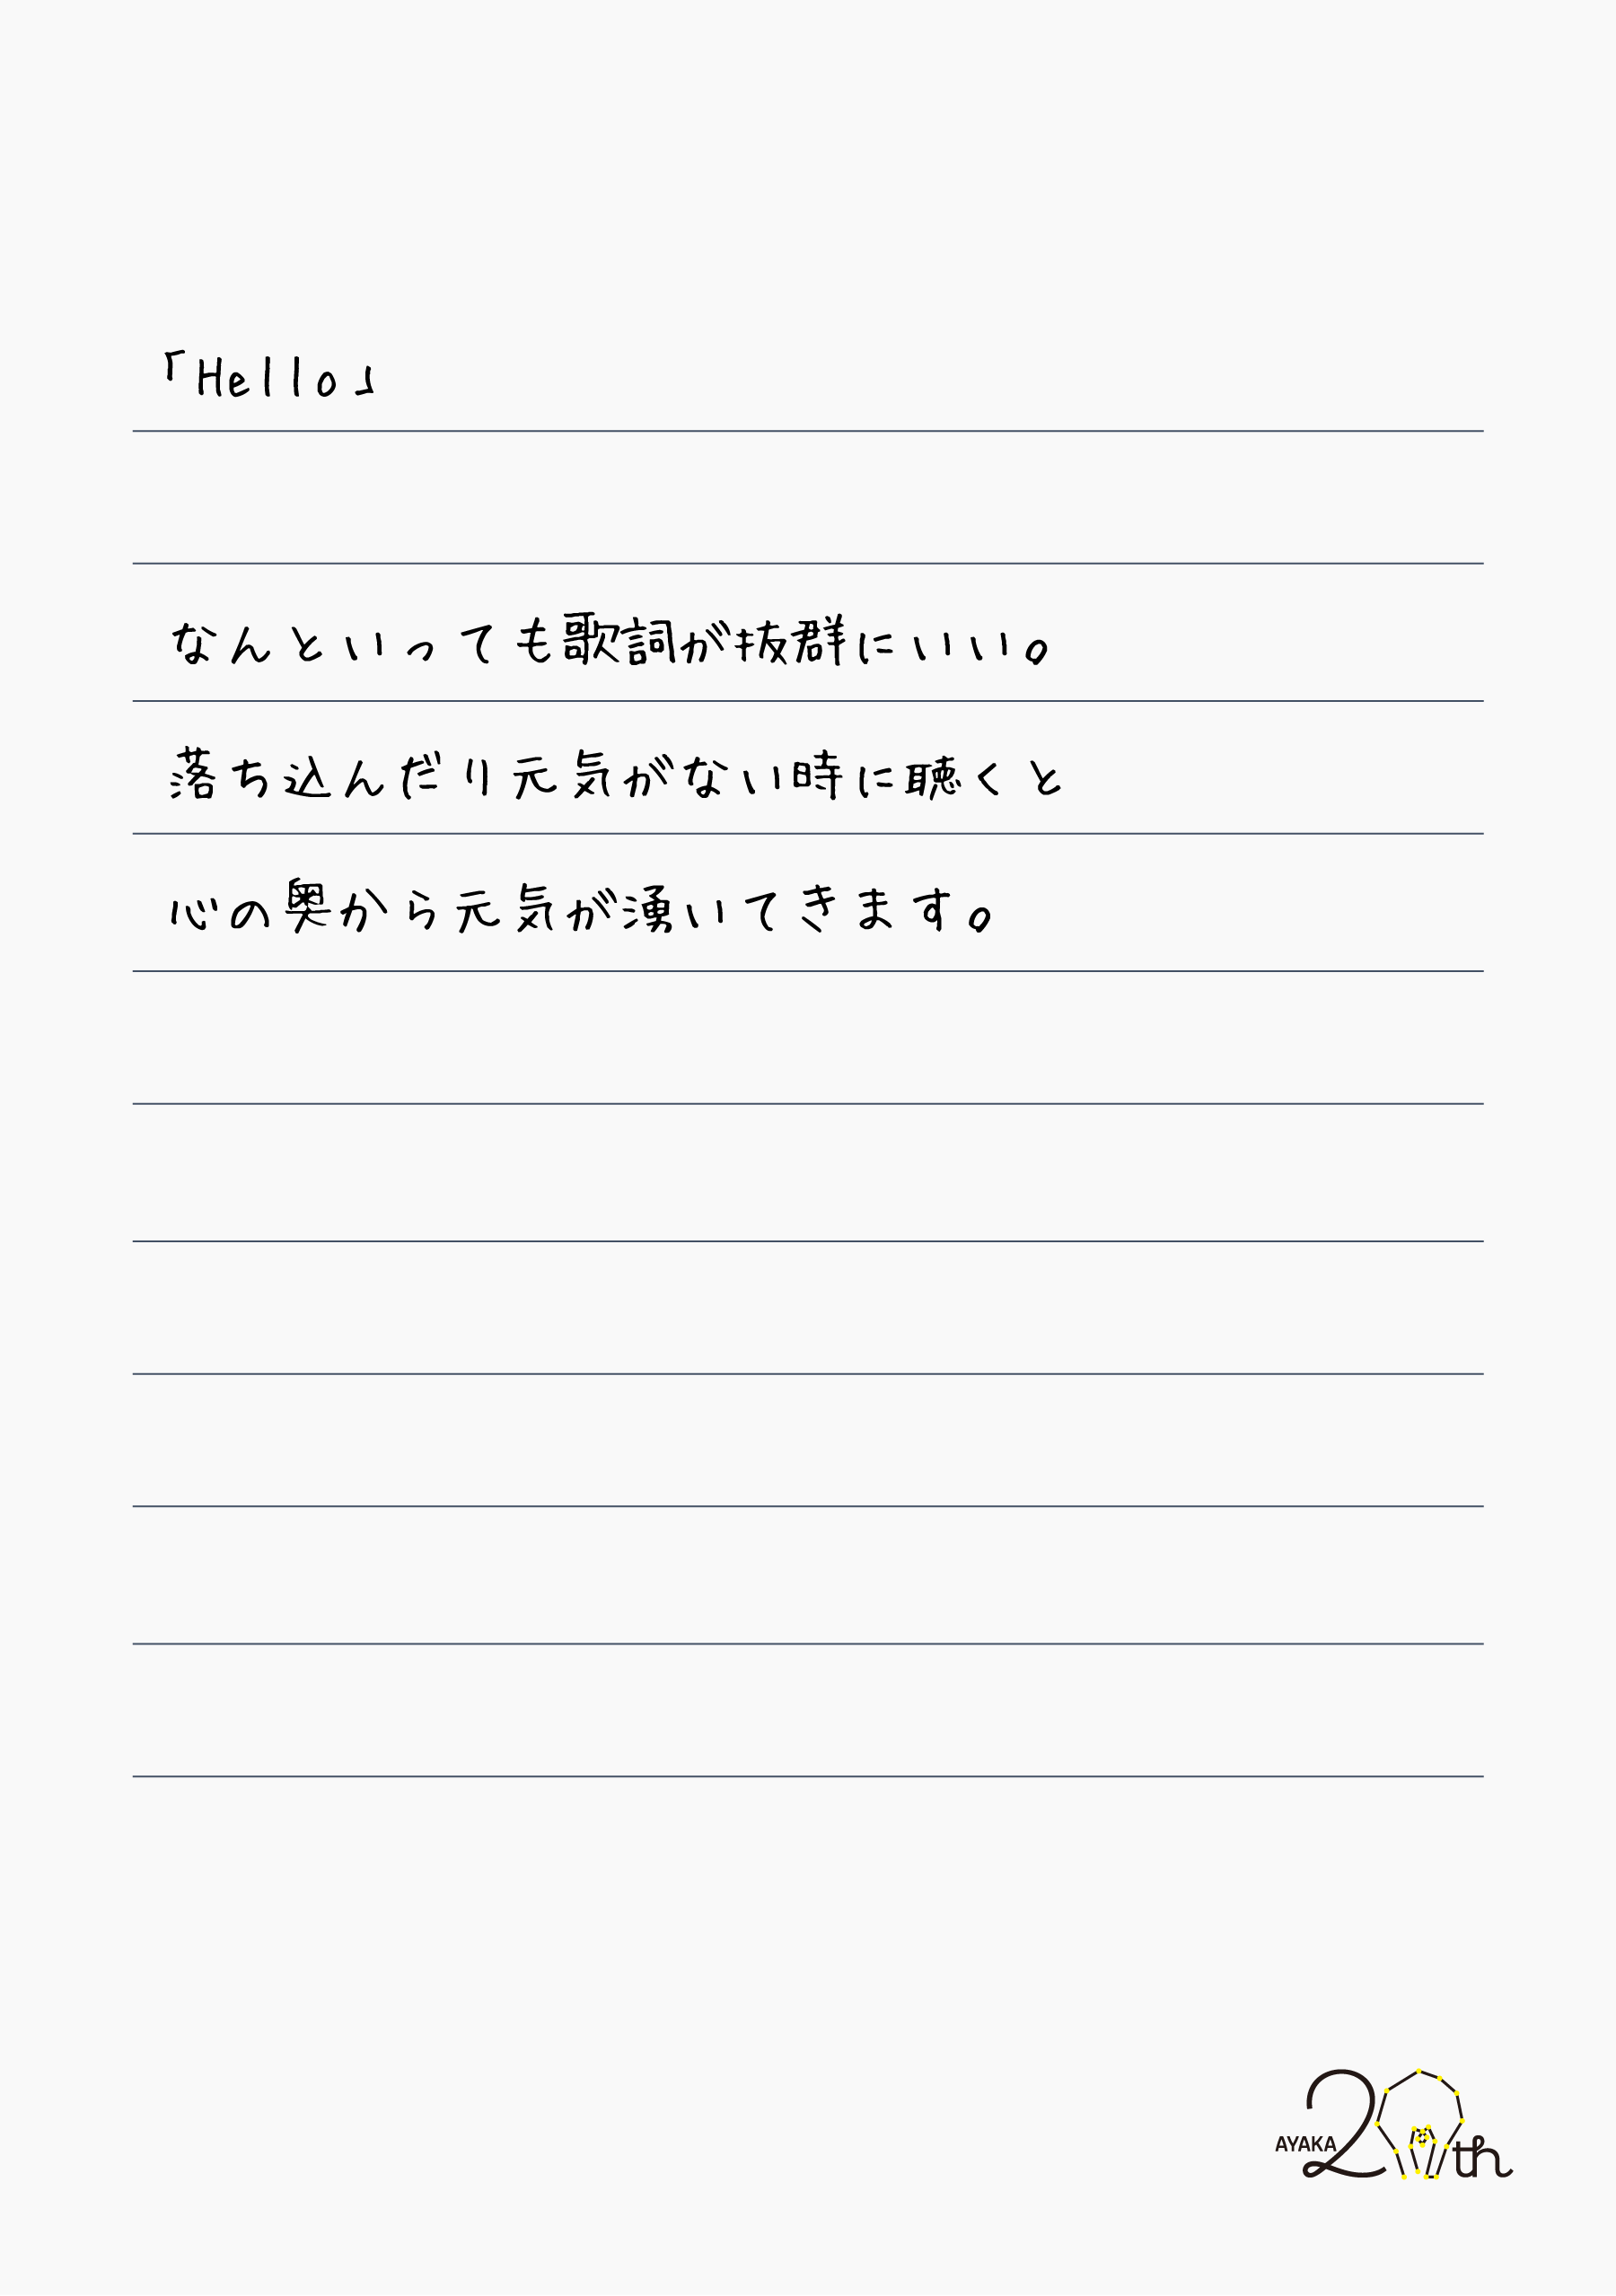 「Hello」
なんといっても歌詞が抜群にいい。
落ち込んだり元気がない時に聴くと
心の奥から元気が湧いてきます。
AYAKA 20th